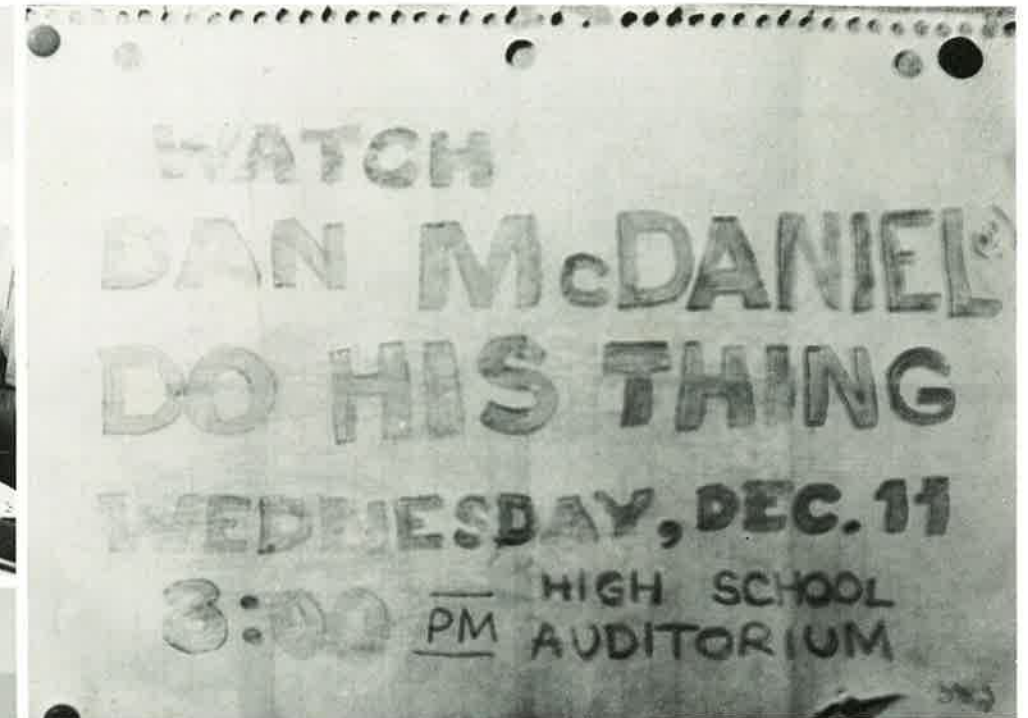 WATCH
DAN McDANIEL
DO HIS THING
WEDNESDAY, DEC. 11
3:00 PM HIGH SCHOOL
AUDITORIUM